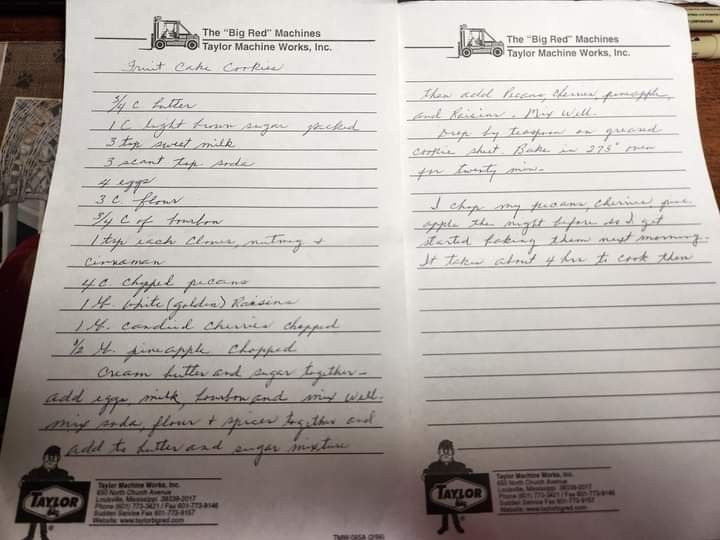 The "Big Red" Machines
Taylor Machine Works, Inc.
Fruit Cake Cookies
3/4 C butter
1 C light brown sugar packed
3 tsp sweet milk
3 scant tsp. soda
4 eggs
3 C. flour
3/4 C of bourbon
1 tsp each cloves, nutmeg +
Cinnaman
4 C. chopped pecans
1 lb. white (golden) Raisins
1 lb. candied cherries chopped
1/2 lb. pineapple chopped
Cream butter and sugar together -
add eggs, milk, bourbon and mix well.
mix soda, flour + spices together and
add to butter and sugar mixture
TAYLOR
Taylor Machine Works, Inc.
650 North Church Avenue
Louisville, Mississippi 39339-2017
Phone (601) 773-3421 / Fax 601-773-9146
Sudden Service Fax 601-773-9157
Website: www.taylorbigred.com
The "Big Red" Machines
Taylor Machine Works, Inc.
then add Pecans, cherries, pineapple,
and Raisins. Mix Well.
Drop by teaspoon on greased
cookie sheet. Bake in 275° oven
for twenty min.
I chop my pecans, cherries, pine
apple the night before so I get
started baking them next morning.
It takes about 4 hrs to cook them
TAYLOR
Taylor Machine Works, Inc.
650 North Church Avenue
Louisville, Mississippi 39339-2017
Phone (601) 773-3421 / Fax 601-773-9146
Sudden Service Fax 601-773-9157
Website: www.taylorbigred.com